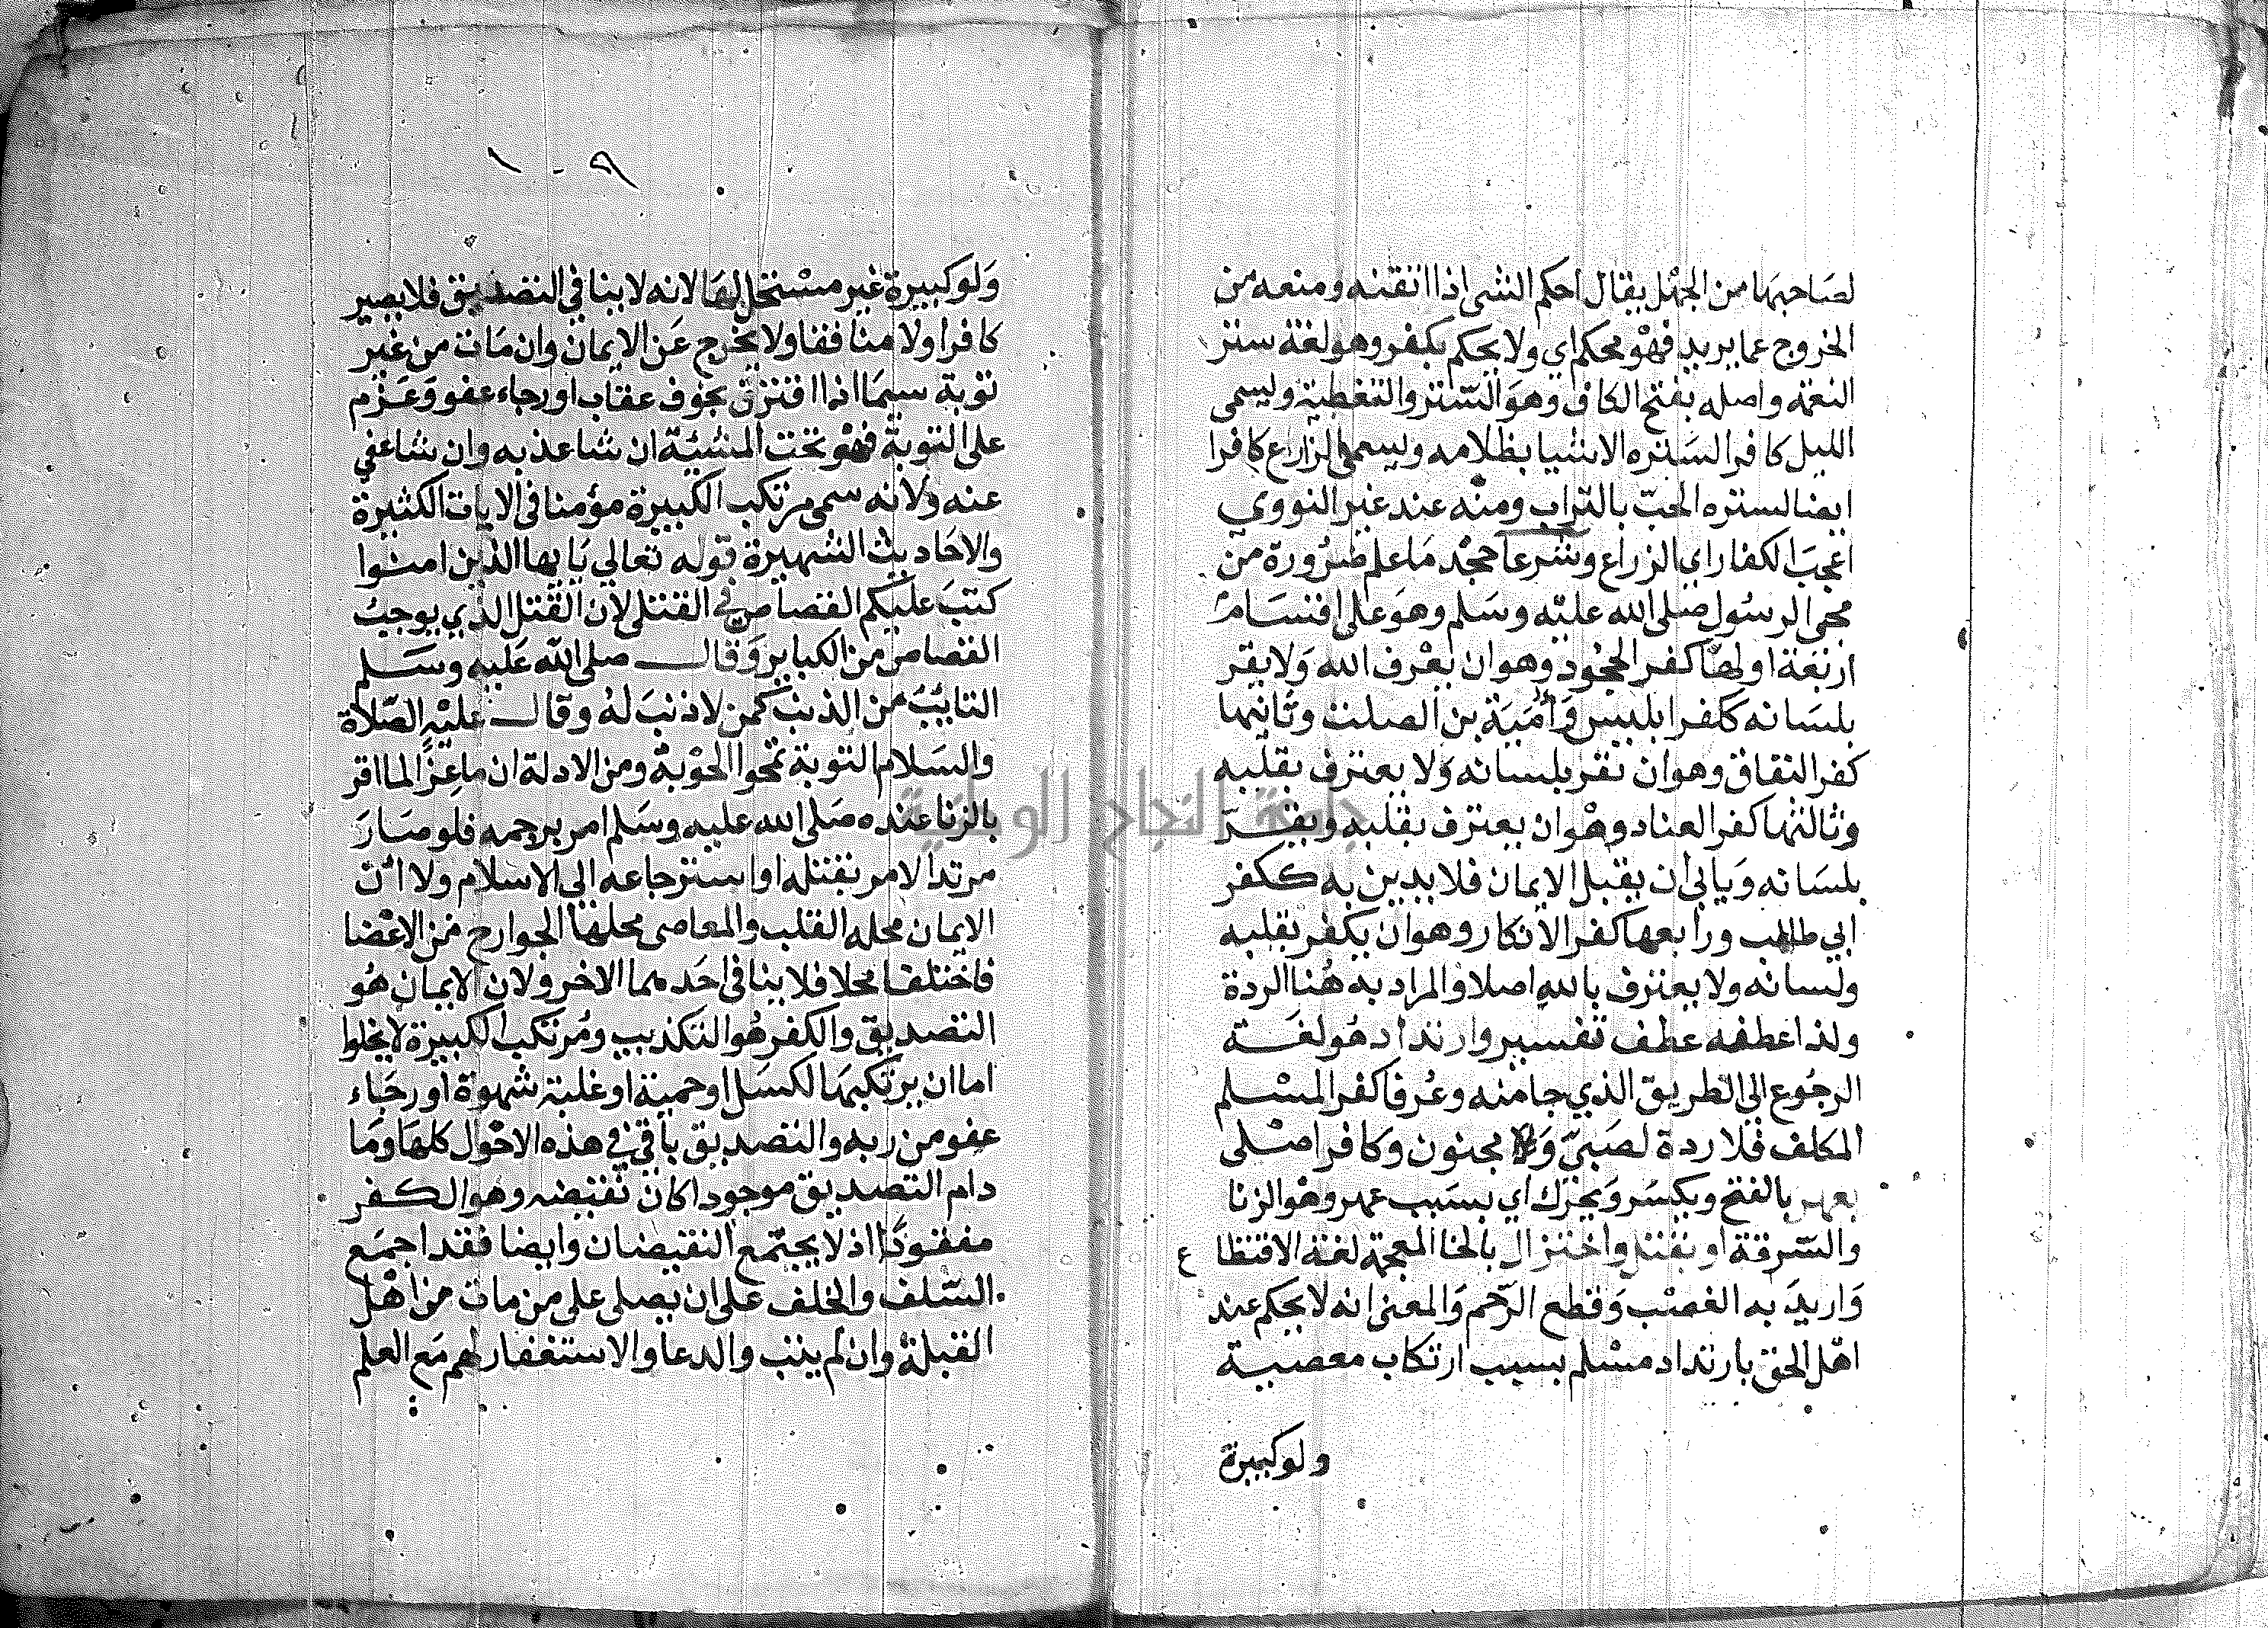 لصاحبها من الجهل يقال احكم الشى اذا اتقنه ومنعه من
الخروج عما يريد فهو محكم اي ولا يحكم بكفر وهو لغة ستر
النعمة واصله بفتح الكاف وهو الستر والتغطية وليسمى
الليل كافرا لستره الاشيا بظلامه وليسمى الزارع كافرا
ايضا لستره الحب بالتراب ومنه عند غير النووي
اعجب الكفار اي الزراع وشرعا جحد ما علم ضرورة من
مجى الرسول صلى الله عليه وسلم وهو على اقسام
اربعة اولها كفر الجحود وهو ان يعرف الله ولا يقر
بلسانه ككفر ابليس وامية بن الصلت وثانيها
كفر النفاق وهو ان يقر بلسانه ولا يعترف بقلبه
وثالثها كفر العناد وهو ان يعترف بقلبه ويقر
بلسانه ويابى ان يقبل الايمان فلا يدين به ككفر
ابي طالب ورابعها كفر الانكار وهو ان يكفر بقلبه
ولسانه ولا يعترف بالله اصلا والمراد به هنا الردة
ولذا عطفه عطف تفسير وارتداد هو لغة
الرجوع الى الطريق الذي جا منه وعرفا كفر المسلم
المكلف فلا ردة لصبي ولا مجنون وكافر اصلى
بعهر بالفتح ويكسر ويحرك اي بسبب عهر وهو الزنا
والسرقة او بقتل واختزال بالخا المعجمة لغة الاقتطا ع
واريد به الغصب وقطع الرحم والمعنى انه لا يحكم عند
اهل الحق بارتداد مسلم بسبب ارتكاب معصية
ولو كبيرة
١٠٩
ولو كبيرة غير مستحل لها لانه لا ينافي التصديق فلا يصير
كافرا ولا منافقا ولا يخرج عن الايمان وان مات من غير
توبة سيما اذا اقترن بخوف عقاب او رجاء عفو وعزم
على التوبة فهو تحت المشية ان شا عذبه وان شا عفي
عنه ولانه سمى مرتكب الكبيرة مؤمنا في الايات الكثيرة
والاحاديث الشهيرة قوله تعالي يا يها الذين امنوا
كتب عليكم القصاص في القتلى لان القتل الذي يوجب
القصاص من الكباير وقال صلى الله عليه وسلم
التايب من الذنب كمن لا ذنب له وقال عليه الصلاة
والسلام التوبة تمحوا الحوبة ومن الادلة ان ماعزا لما اقر
بالزنا عنده صلى الله عليه وسلم امر برجمه فلو صار
مرتدا لامر بقتله او استرجاعه الى الاسلام ولا ان
الايمان محله القلب والمعاصى محلها الجوارح من الاعضا
فاختلفا محلا فلا ينافى احدهما الاخر ولان الايمان هو
التصديق والكفر هو التكذيب ومرتكب الكبيرة لا يخلوا
اما ان يرتكبها لكسل او حمية او غلبة شهوة او رجاء
عفو من ربه والتصديق باقي في هذه الاحول كلها وما
دام التصديق موجودا كان نقيضه وهو الكفر
مفقودا اذ لا يجتمع النقيضان وايضا فقد اجمع
السلف والخلف على ان يصلى على من مات من اهل
القبلة وان لم يتب والدعا والاستغفار لهم مع العلم
جامعة النجاح الوطنية